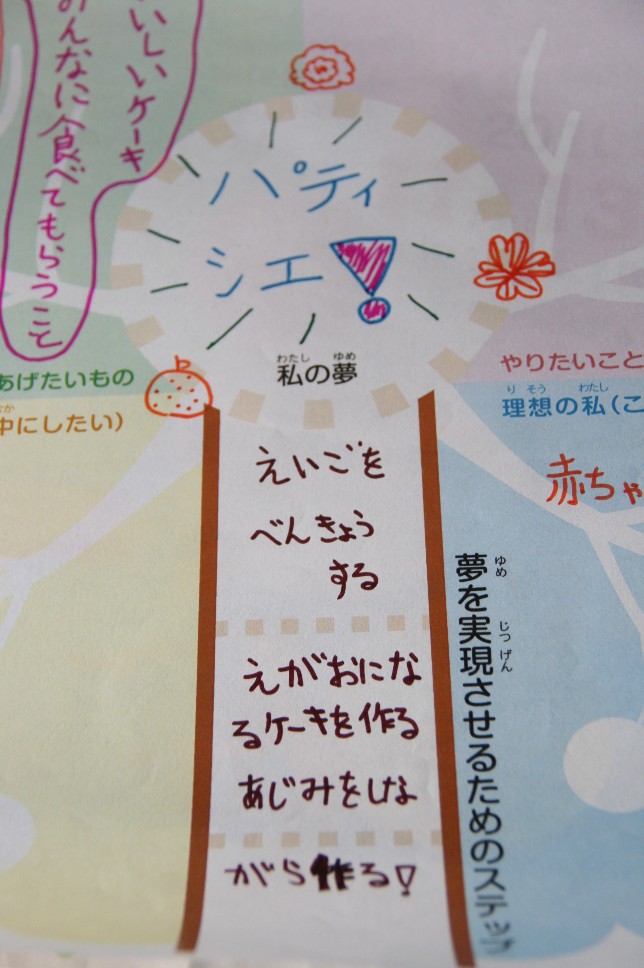 いしいケーキ
みんなに食べてもらうこと
パティ
シエ!
わたし ゆめ
私の夢
あげたいもの
中にしたい)
やりたいこと
りそう わたし
理想の私(こ
赤ちゃ
えいごを
べんきょう
する
えがおにな
るケーキを作る
あじみをしな
がら作る!
ゆめ じつげん
夢を実現させるためのステップ